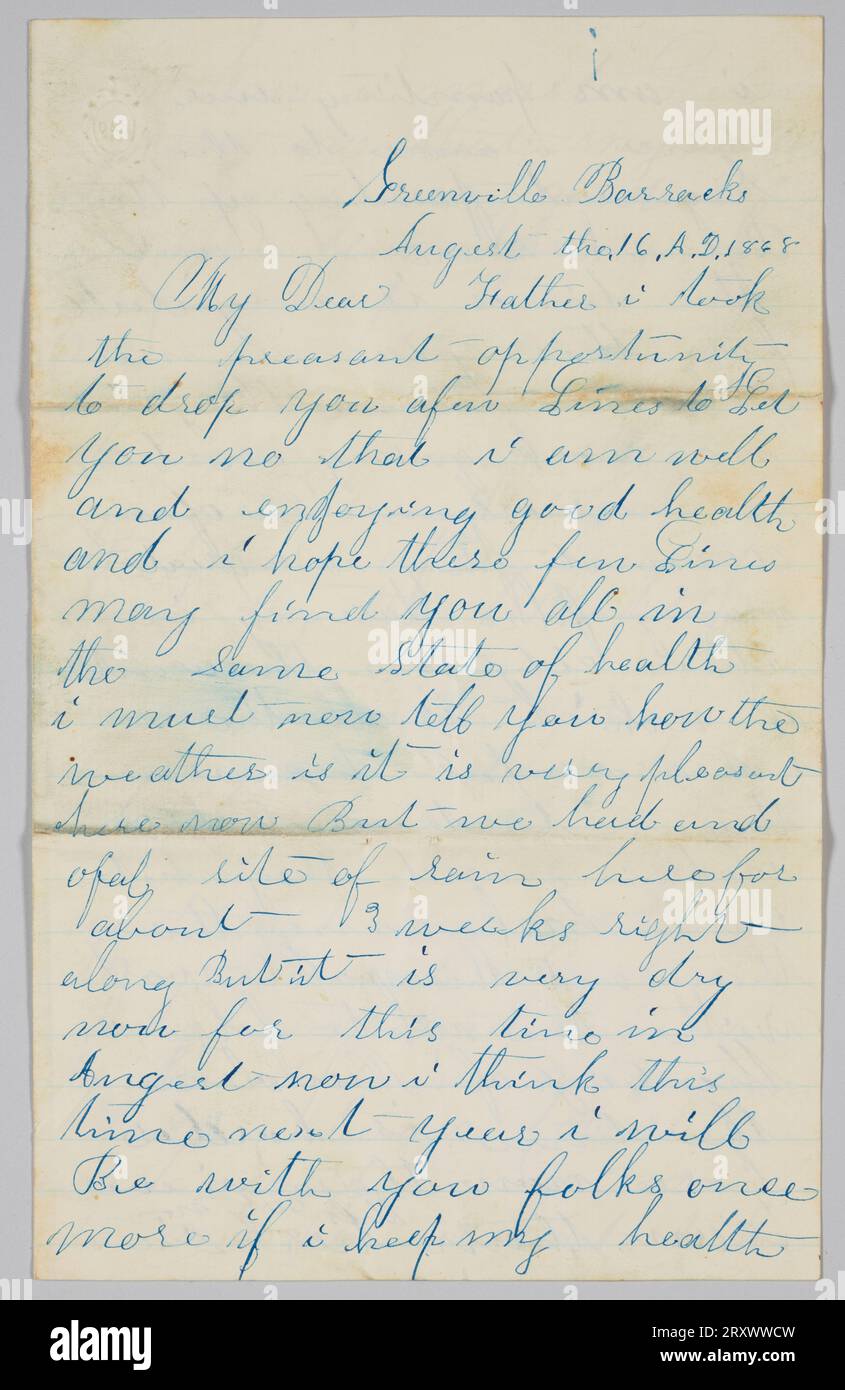 i
Greenville Barracks
Angest the,16, A.D,1868
My Dear Father i took
the preasant opportunity
to drop you afew Lines to Let
you no that i am well
and enjoying good health
and i hope these few Lines
may find you all in
the same state of health
i must now tell you how the
weather is it is verry pleasant
here now But we had and
ofal site of rain here for
about 3 weeks right
along But it is very dry
now for this time in
Angest now i think this
time next year i will
Be with you folks once
more if i keep my health
alamy
Image ID: 2RXWWCW
www.alamy.com